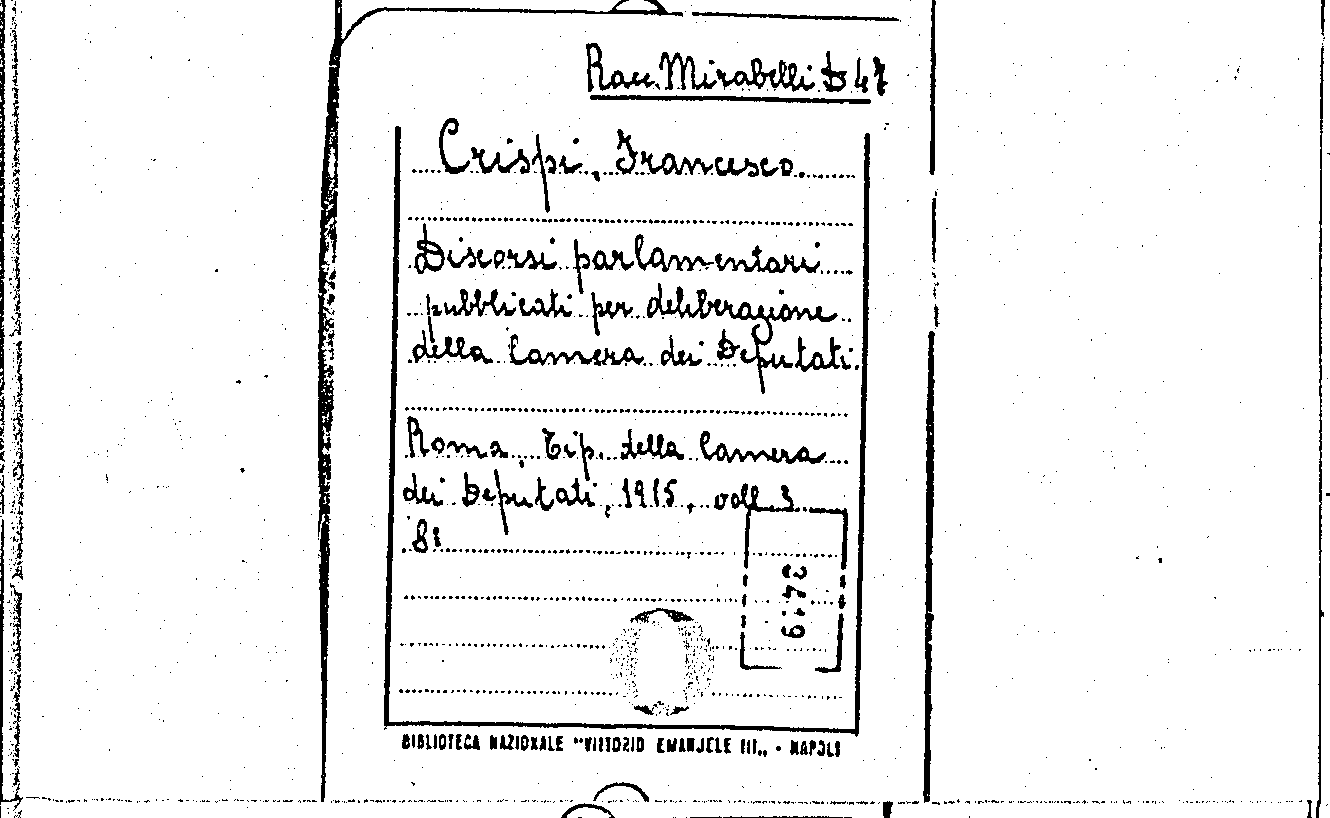 Racc. Mirabelli D 47
Crispi, Francesco.
Discorsi parlamentari
pubblicati per deliberazione
della Camera dei Deputati.
Roma, Tip. della Camera
dei Deputati, 1915, voll. 3
8º
BIBLIOTECA NAZIONALE "VITTORIO EMANUELE III„ - NAPOLI